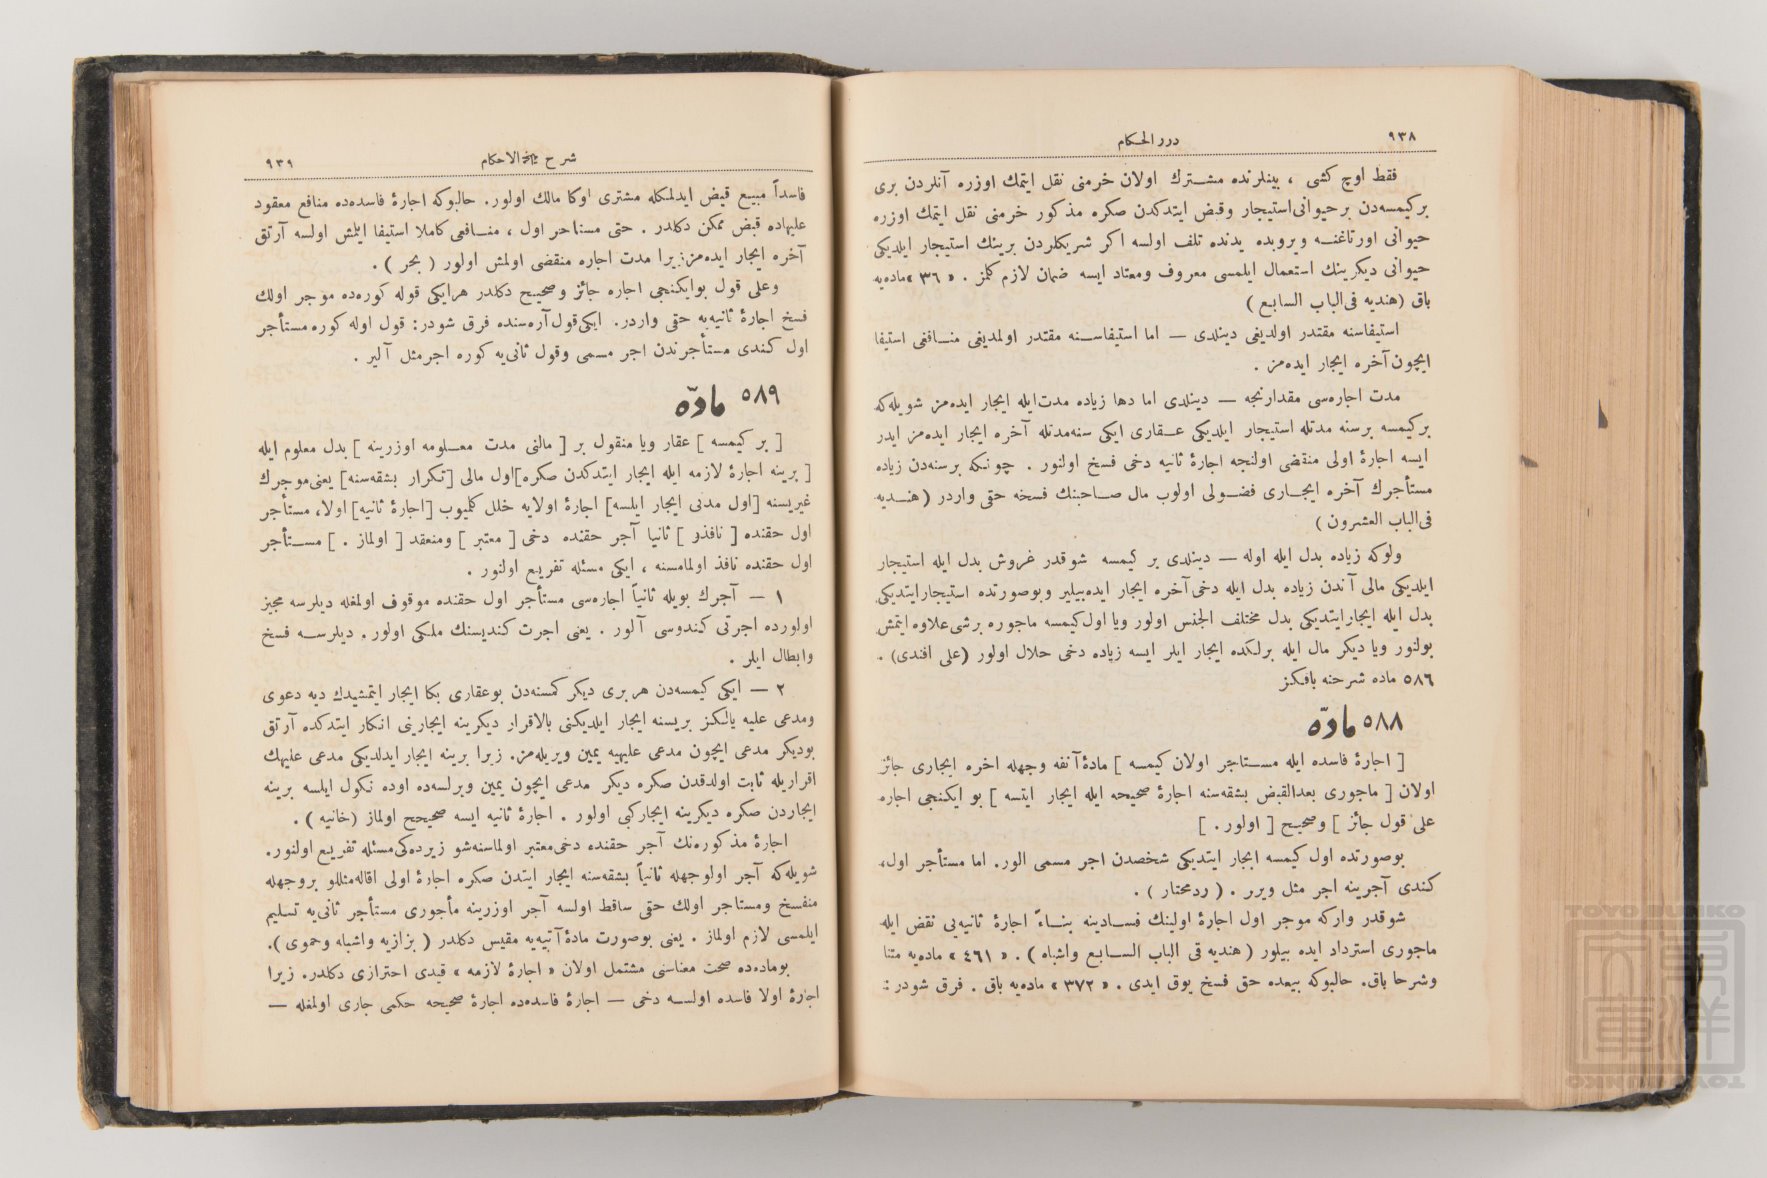 ٩٣٨
درر الحكام
فقط اوچ كشی ، بینلرنده مشترك اولان خرمنی نقل ایتمك اوزره آنلردن بری
بركیمسه‌دن بر حیوانی استیجار وقبض ایتدكدن صكره مذكور خرمنی نقل ایتمك اوزره
حیوانی اورتاغنه ویروبده یدنده تلف اولسه اكر شریكلردن برینك استیجار ایلدیكی
حیوانی دیكرینك استعمال ایلمسی معروف ومعتاد ایسه ضمان لازم كلمز . « ٣٦ » ماده‌یه
باق (هندیه فی الباب السابع )
استیفاسنه مقتدر اولدیغی دینلدی — اما استیفاسنه مقتدر اولمدیغی منافعی استیفا
ایچون آخره ایجار ایده‌مز .
مدت اجاره‌سی مقدارنجه — دینلدی اما دها زیاده مدت ایله ایجار ایده‌مز شویله‌كه
بركیمسه برسنه مدتله استیجار ایلدیكی عقاری ایكی سنه مدتله آخره ایجار ایده‌مز ایدر
ایسه اجارهٔ اولی منقضی اولنجه اجارهٔ ثانیه دخی فسخ اولنور . چونكه برسنه‌دن زیاده
مستأجرك آخره ایجاری فضولی اولوب مال صاحبنك فسخه حقی واردر ( هندیه
فی الباب العشرون )
ولوكه زیاده بدل ایله اوله — دینلدی بر كیمسه شوقدر غروش بدل ایله استیجار
ایلدیكی مالی آندن زیاده بدل ایله دخی آخره ایجار ایده‌بیلیر وبوصورتده استیجار ایتدیكی
بدل ایله ایجار ایتدیكی بدل مختلف الجنس اولور ویا اول كیمسه ماجوره برشی علاوه ایتمش
بولنور ویا دیكر مال ایله برلكده ایجار ایلر ایسه زیاده دخی حلال اولور (علی افندی) .
٥٨٦ ماده شرحنه باقكز
٥٨٨ مادّه
[ اجارهٔ فاسده ایله مستاجر اولان كیمسه ] مادهٔ آنفه وجهله اخره ایجاری جائز
اولان [ ماجوری بعدالقبض بشقه‌سنه اجارهٔ صحیحه ایله ایجار ایتسه ] بو ایكنجی اجاره
علی قول جائز ] وصحیح [ اولور . ]
بوصورتده اول كیمسه ایجار ایتدیكی شخصدن اجر مسمی الور. اما مستأجر اول،
كندی آجرینه اجر مثل ویرر . ( ردمحتار ) .
شوقدر واركه موجر اول اجارهٔ اولینك فسادینه بناءً اجارهٔ ثانیه‌یی نقض ایله
ماجوری استرداد ایده بیلور ( هندیه فی الباب السابع واشباه ) . « ٤٦١ » ماده‌یه متنا
وشرحا باق. حالبوكه بیعده حق فسخ یوق ایدی . « ٣٧٢ » ماده‌یه باق . فرق شودر :
شرح مجلة الاحكام
٩٣٩
فاسداً مبیع قبض ایدلمكله مشتری اوكا مالك اولور. حالبوكه اجارهٔ فاسده‌ده منافع معقود
علیهاده قبض ممكن دكلدر . حتی مستاجر اول ، منافعی كاملا استیفا ایلمش اولسه آرتق
آخره ایجار ایده‌مز. زیرا مدت اجاره منقضی اولمش اولور ( بحر ) .
وعلی قول بوایكنجی اجاره جائز وصحیح دكلدر هرایكی قوله كوره‌ده موجر اولك
فسخ اجارهٔ ثانیه‌یه حقی واردر. ایكی قول آره‌سنده فرق شودر: قول اوله كوره مستأجر
اول كندی مستأجرندن اجر مسمی وقول ثانی‌یه كوره اجر مثل آلیر .
٥٨٩ مادّه
[ بر كیمسه ] عقار ویا منقول بر [ مالنی مدت معلومه اوزرینه ] بدل معلوم ایله
[ برینه اجارهٔ لازمه ایله ایجار ایتدكدن صكره] اول مالی [تكرار بشقه‌سنه] یعنی موجرك
غیریسنه [اول مدتی ایجار ایلسه] اجارهٔ اولایه خلل كلمیوب [اجارهٔ ثانیه] اولا، مستأجر
اول حقنده [ نافذو ] ثانیا آجر حقنده دخی [ معتبر ] ومنعقد [ اولماز . ] مستأجر
اول حقنده نافذ اولمامسنه ، ایكی مسئله تفریع اولنور .
١ — آجرك بویله ثانیاً اجاره‌سی مستأجر اول حقنده موقوف اولمغله دیلرسه مجیز
اولورده اجرتی كیندوسی آلور . یعنی اجرت كندیسنك ملكی اولور . دیلرسه فسخ
وابطال ایلر .
٢ — ایكی كیمسه‌دن هر بری دیكر كمسنه‌دن بوعقاری بكا ایجار ایتمشیدك دیه دعوی
ومدعی علیه یالكز بریسنه ایجار ایلدیكنی بالاقرار دیكرینه ایجارینی انكار ایتدكده آرتق
بودیكر مدعی ایچون مدعی علیهیه یمین ویریله‌مز. زیرا برینه ایجار ایدلدیكی مدعی علیهك
اقراریله ثابت اولدقدن صكره دیكر مدعی ایچون یمین ویرلسه‌ده اوده نكول ایلسه برینه
ایجاردن صكره دیكرینه ایجاركبی اولور . اجارهٔ ثانیه ایسه صحیحح اولماز (خانیه ) .
اجارهٔ مذكوره‌نك آجر حقنده دخی معتبر اولماسنه شو زیرده‌كی مسئله تفریع اولنور.
شویله‌كه آجر اولوجهله ثانیاً بشقه‌سنه ایجار ایتدن صكره اجارهٔ اولی اقاله مثللو بروجهله
منفسخ ومستاجر اولك حقی ساقط اولسه آجر اوزرینه مأجوری مستأجر ثانی‌یه تسلیم
ایلمسی لازم اولماز . یعنی بوصورت مادهٔ آتیه‌یه مقیس دكلدر ( بزازیه واشباه وحموی ).
بوماده‌ده صحت معناسنی مشتمل اولان « اجارهٔ لازمه » قیدی احترازی دكلدر. زیرا
اجارهٔ اولا فاسده اولسه دخی — اجارهٔ فاسده‌ده اجارهٔ صحیحه حكمی جاری اولمغله —
TOYO BUNKO
東洋
文庫
TOYO BUNKO